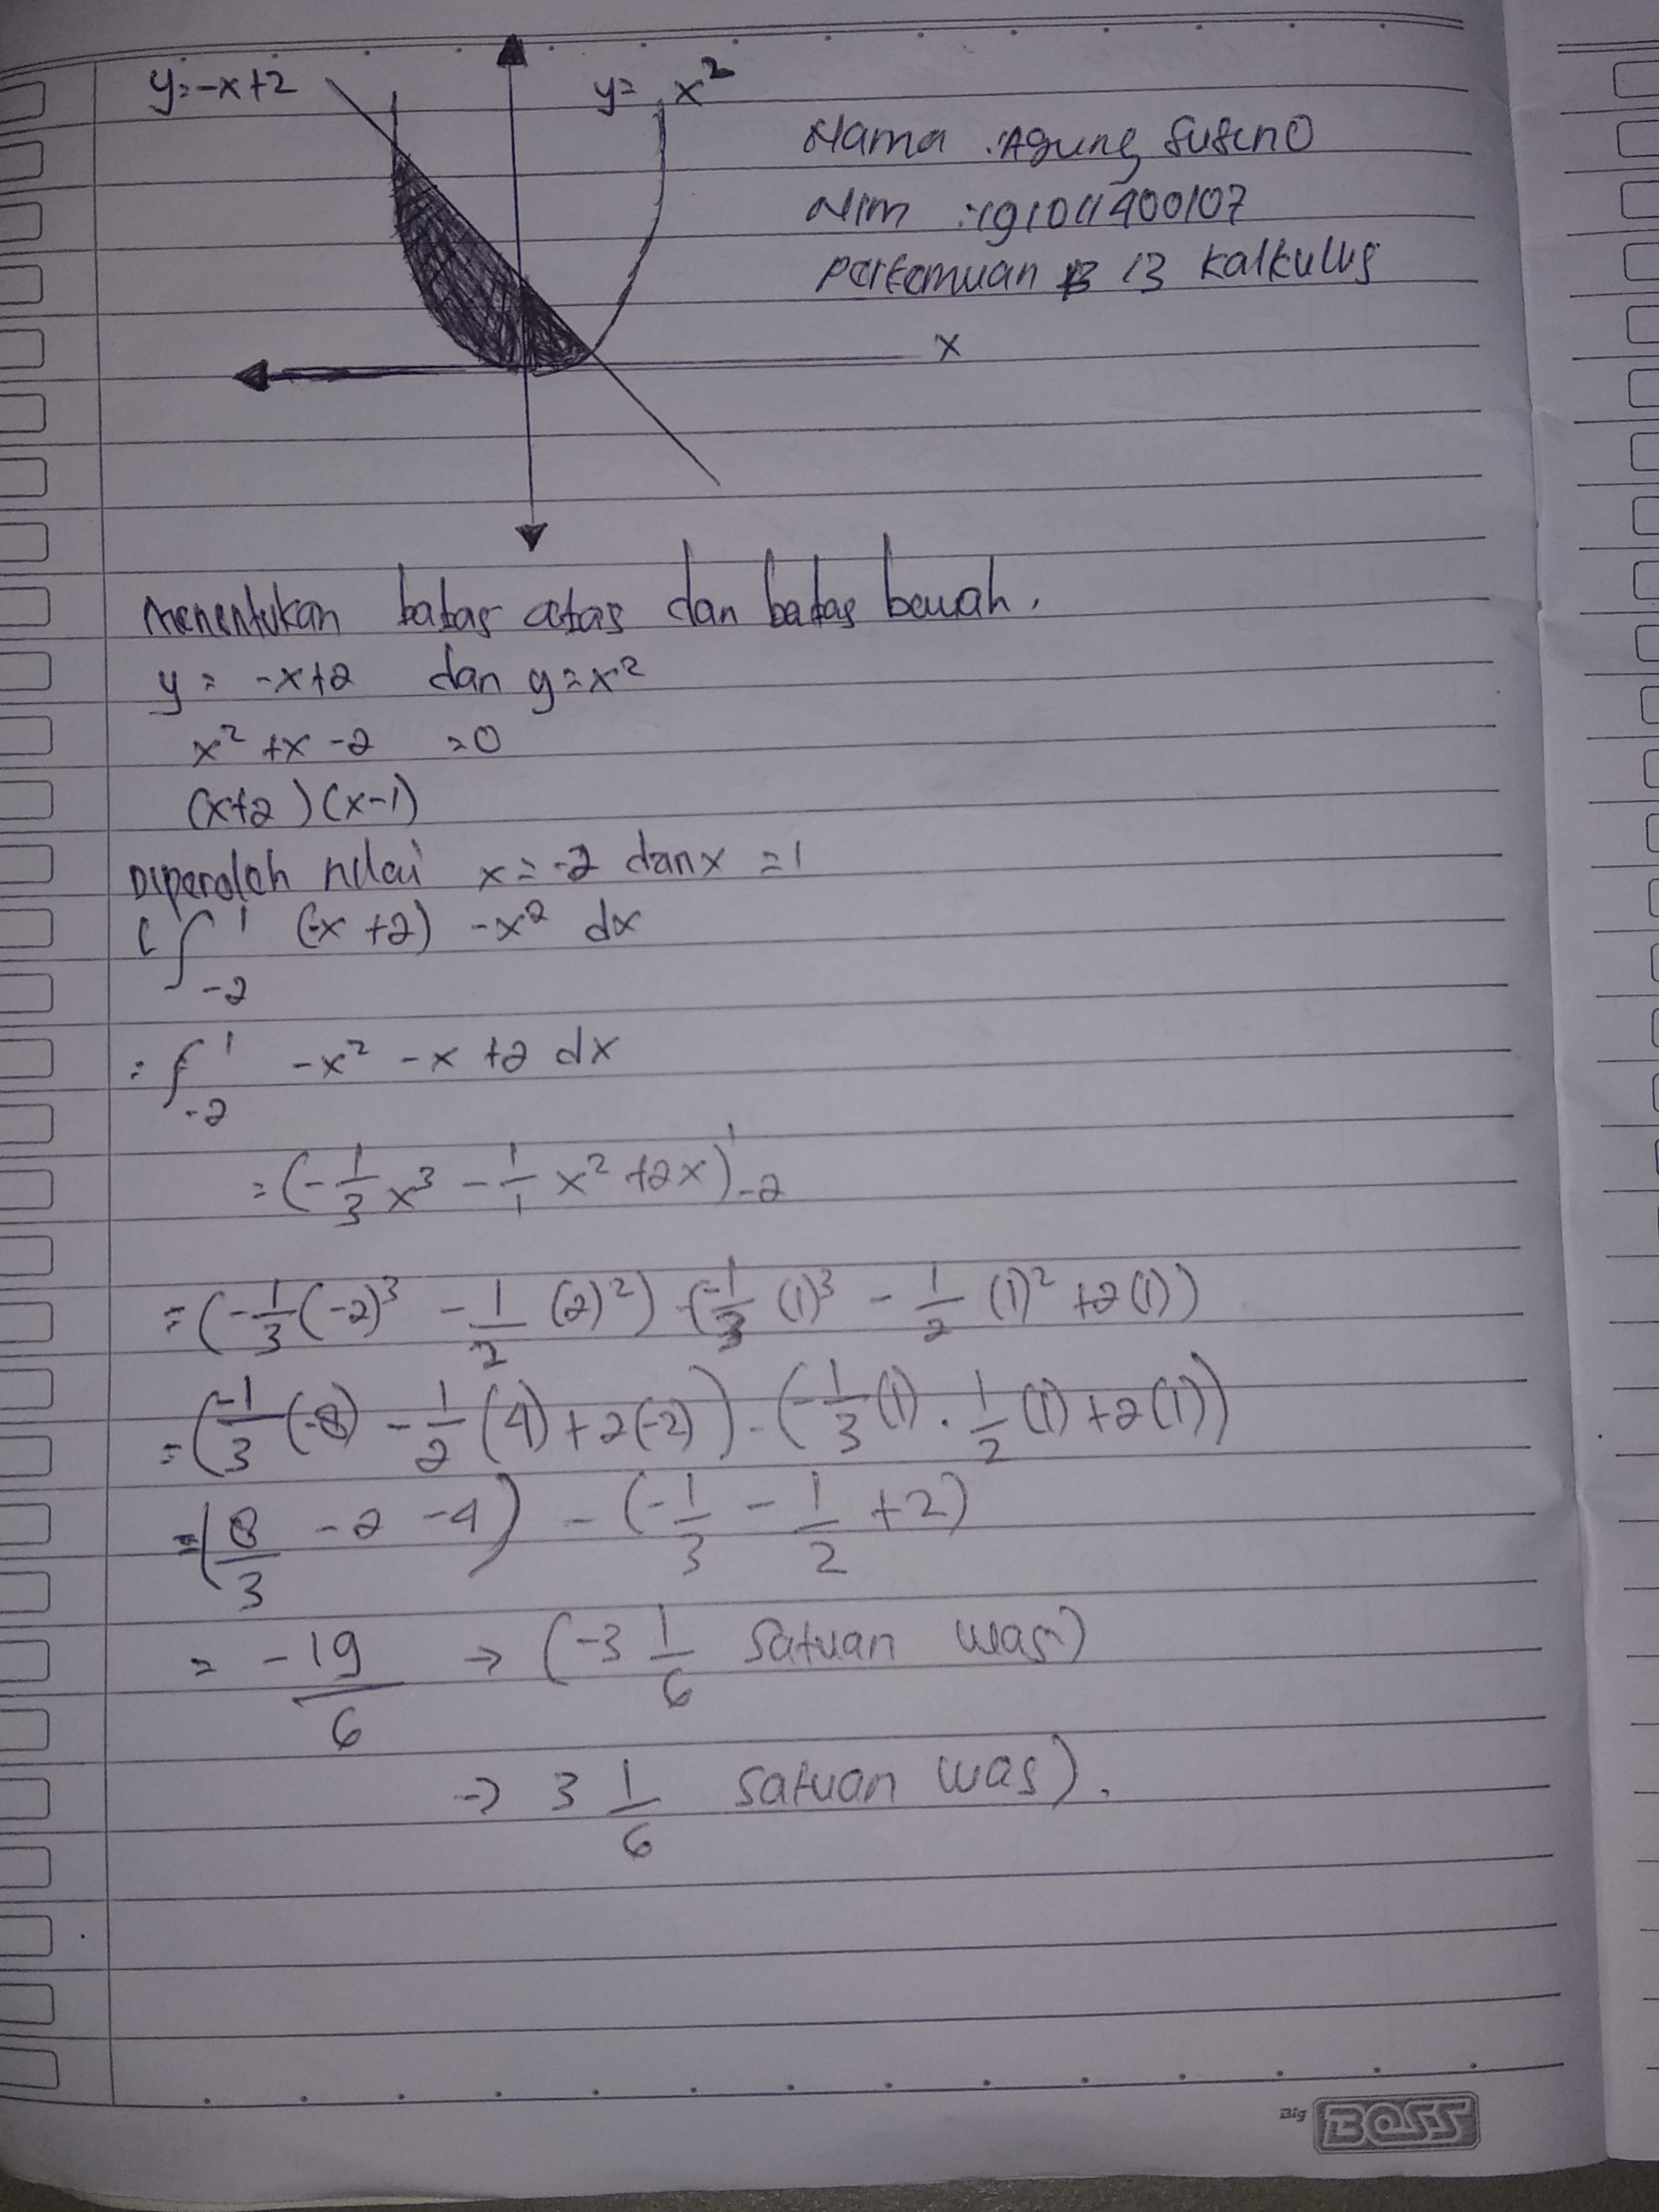 y=-x+2
y= x²
Nama : Agung Suseno
Nim : 191011400107
Pertemuan 13 kalkulus
x
Menentukan batas atas dan batas bawah.
y = -x+2 dan y=x²
x² +x -2 =0
(x+2)(x-1)
Diperoleh nilai x=-2 dan x =1
∫₋₂¹ (-x +2) -x² dx
= ∫₋₂¹ -x² -x +2 dx
= (-1/3 x³ - 1/1 x² +2x)¹₋₂
= (-1/3 (-2)³ - 1/2 (2)²) - (-1/3 (1)³ - 1/2 (1)² +2(1))
= (-1/3 (-8) - 1/2 (4) + 2(-2)) - (-1/3 (1) . 1/2 (1) +2(1))
= (8/3 -2 -4) - (-1/3 - 1/2 +2)
= -19/6 → (-3 1/6 Satuan luas)
→ 3 1/6 Satuan luas).
Big BOSS